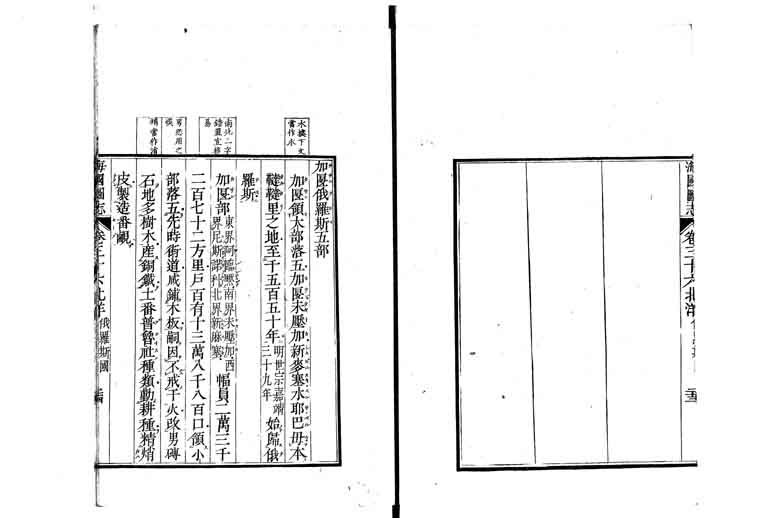 海國圖志
卷三十六 北洋
加匽俄羅斯五部
加匽領大部落五加匽未壓加新麥塞水耶巴毋本
韃韃里之地至千五百五十年明世宗嘉靖三十九年始歸俄
羅斯
加匽部東界阿臨默南界未壓加西界尼斯諾北界新麻塞幅員二萬三千
二百七十二方里戶百有十三萬八千八百口領小
部落五先時街道咸鋪木板嗣因不戒于火改男磚
石地多樹木產銅鐵土番普魯社種類勤耕種精焇
皮製造番
海國圖志
卷三十六 北洋 俄羅斯國
南北二字錯置宜移易
男恐用之誤